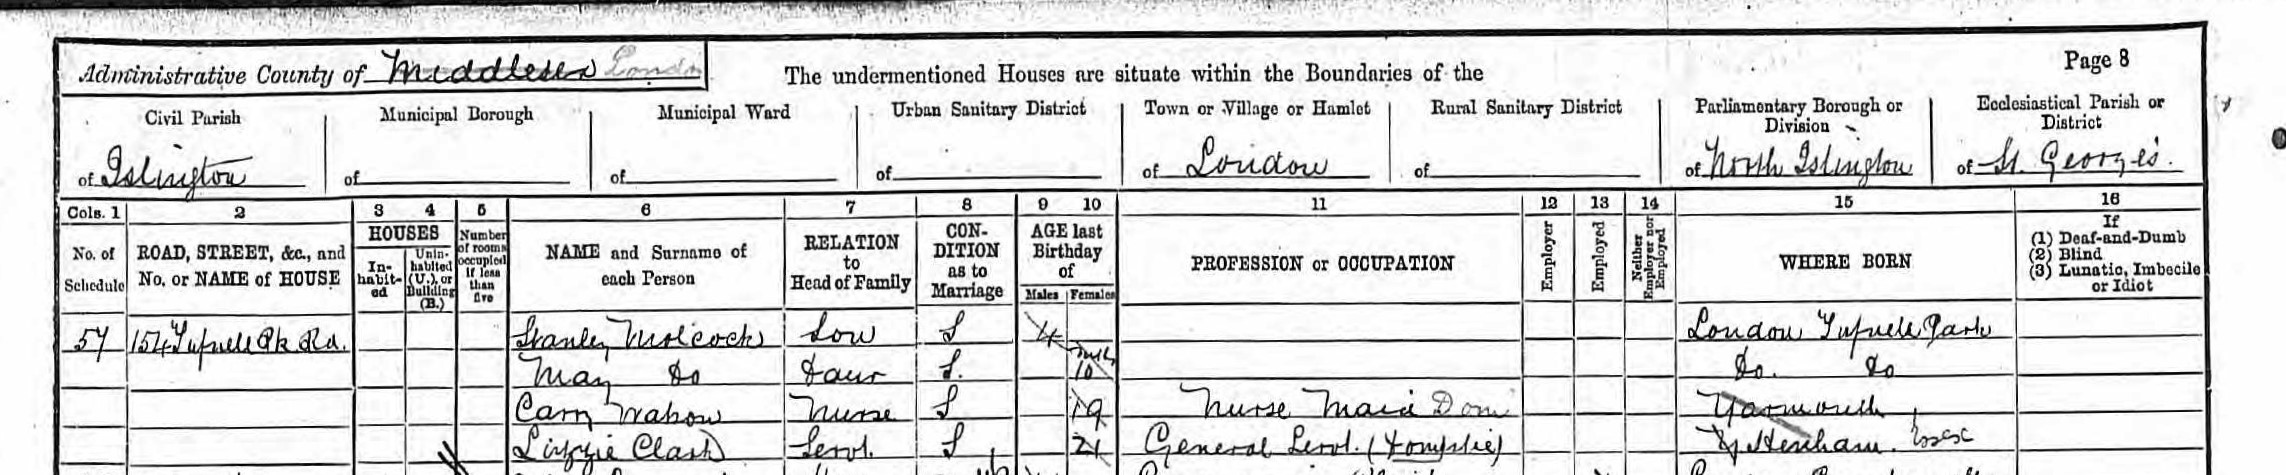 Administrative County of Middlesex London
The undermentioned Houses are situate within the Boundaries of the
Page 8
Civil Parish
of Islington
Municipal Borough
of
Municipal Ward
of
Urban Sanitary District
of
Town or Village or Hamlet
of London
Rural Sanitary District
of
Parliamentary Borough or
Division
of North Islington
Ecclesiastical Parish or
District
of St. George's.
Cols. 1 2 3 4 5 6 7 8 9 10 11 12 13 14 15 16
No. of
Schedule
ROAD, STREET, &c., and
No. or NAME of HOUSE
HOUSES
In-
habit-
ed
Unin-
habited
(U.), or
Building
(B.)
Number
of rooms
occupied
if less
than
five
NAME and Surname of
each Person
RELATION
to
Head of Family
CON-
DITION
as to
Marriage
AGE last
Birthday
of
Males Females
PROFESSION or OCCUPATION
Employer
Employed
Neither
Employer nor
Employed
WHERE BORN
If
(1) Deaf-and-Dumb
(2) Blind
(3) Lunatic, Imbecile
or Idiot
57 154 Tufnell Pk Rd. Stanley Son S 4 London Tufnell Park
May Do Daur S. 10 mths Do. Do
Nurse S 19 Nurse Maid Dom Yarmouth
Lizzie Clark Servt. S 21 General Servt. (Domestic) Essex